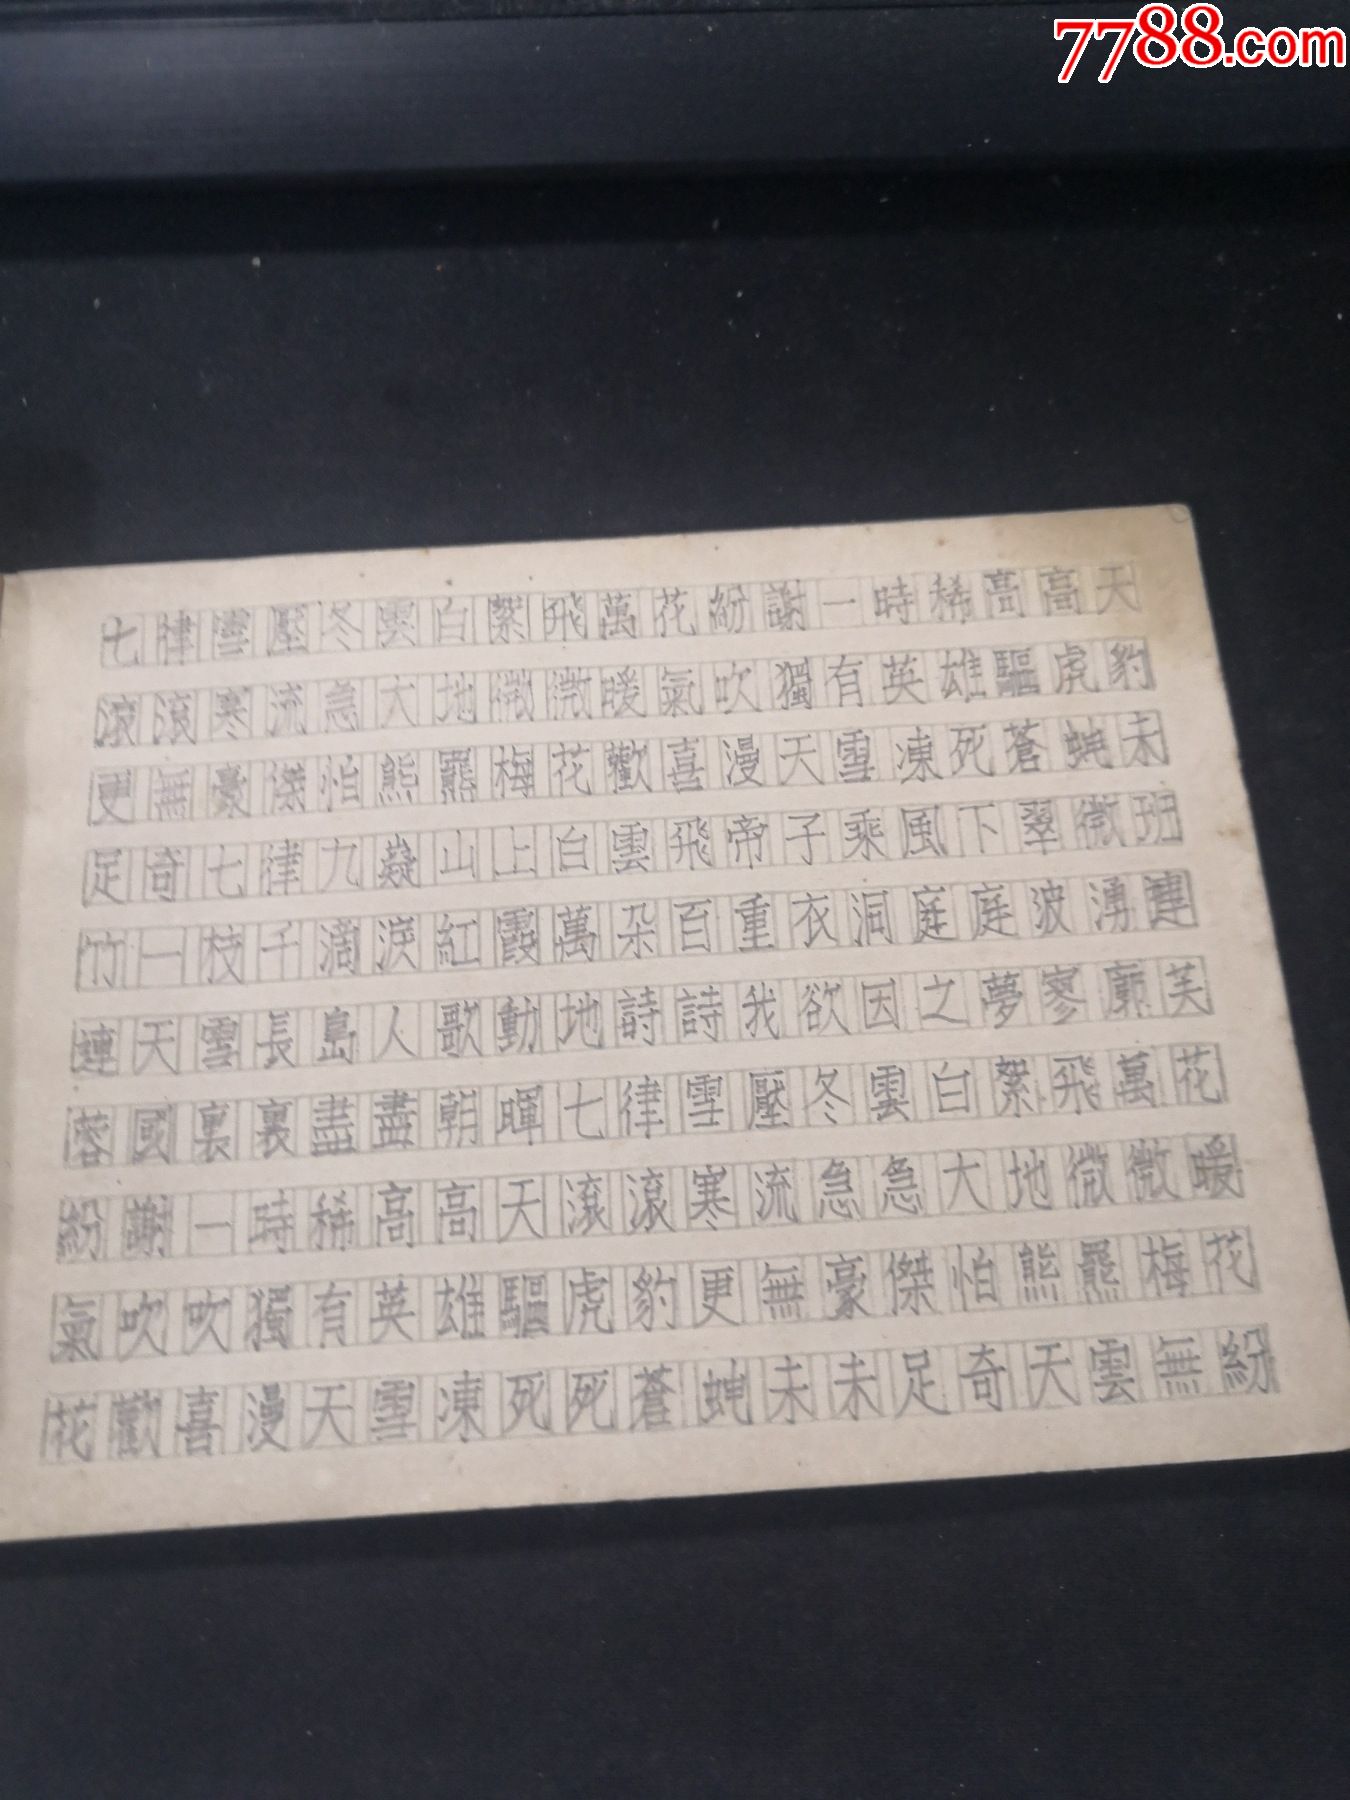 7788.com
七律雪壓冬雲白絮飛萬花紛謝一時稀高高天
滾滾寒流急大地微微暖氣吹獨有英雄驅虎豹
更無豪傑怕熊羆梅花歡喜漫天雪凍死蒼蝇未
足奇七律九嶷山上白雲飛帝子乘風下翠微班
竹一枝千滴淚紅霞萬朶百重衣洞庭庭波湧連
連天雪長島人歌動地詩詩我欲因之夢寥廓芙
蓉國裏裏盡盡朝暉七律雪壓冬雲白絮飛萬花
紛謝一時稀高高天滾滾寒流急急大地微微暖
氣吹吹獨有英雄驅虎豹更無豪傑怕熊羆梅花
花歡喜漫天雪凍死死蒼蝇未未足奇天雲無紛